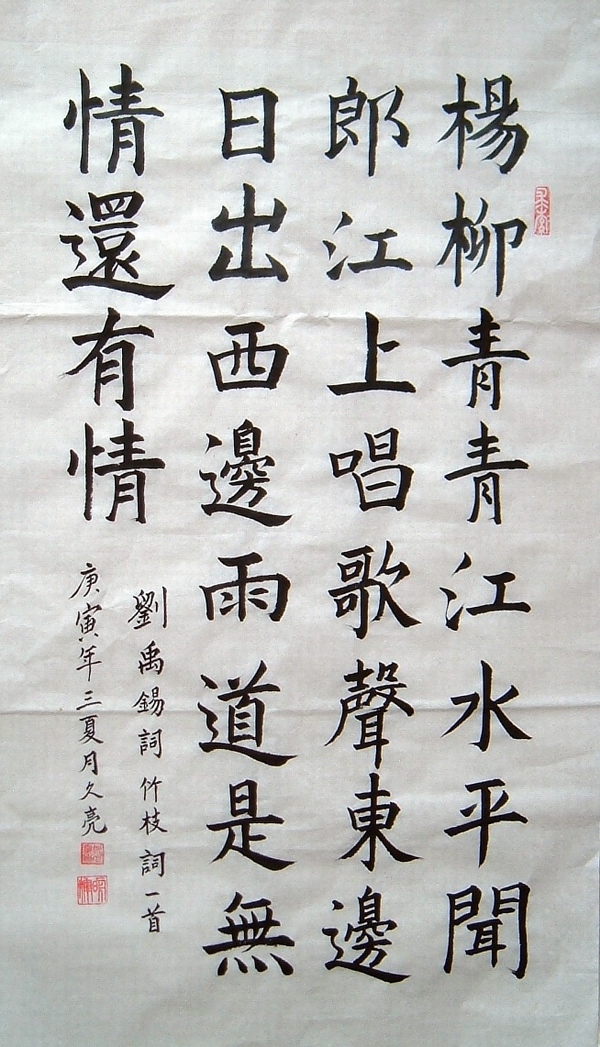 楊柳青青江水平聞
郎江上唱歌聲東邊
日出西邊雨道是無
情還有情
劉禹錫詞竹枝詞一首
庚寅年三夏月久亮